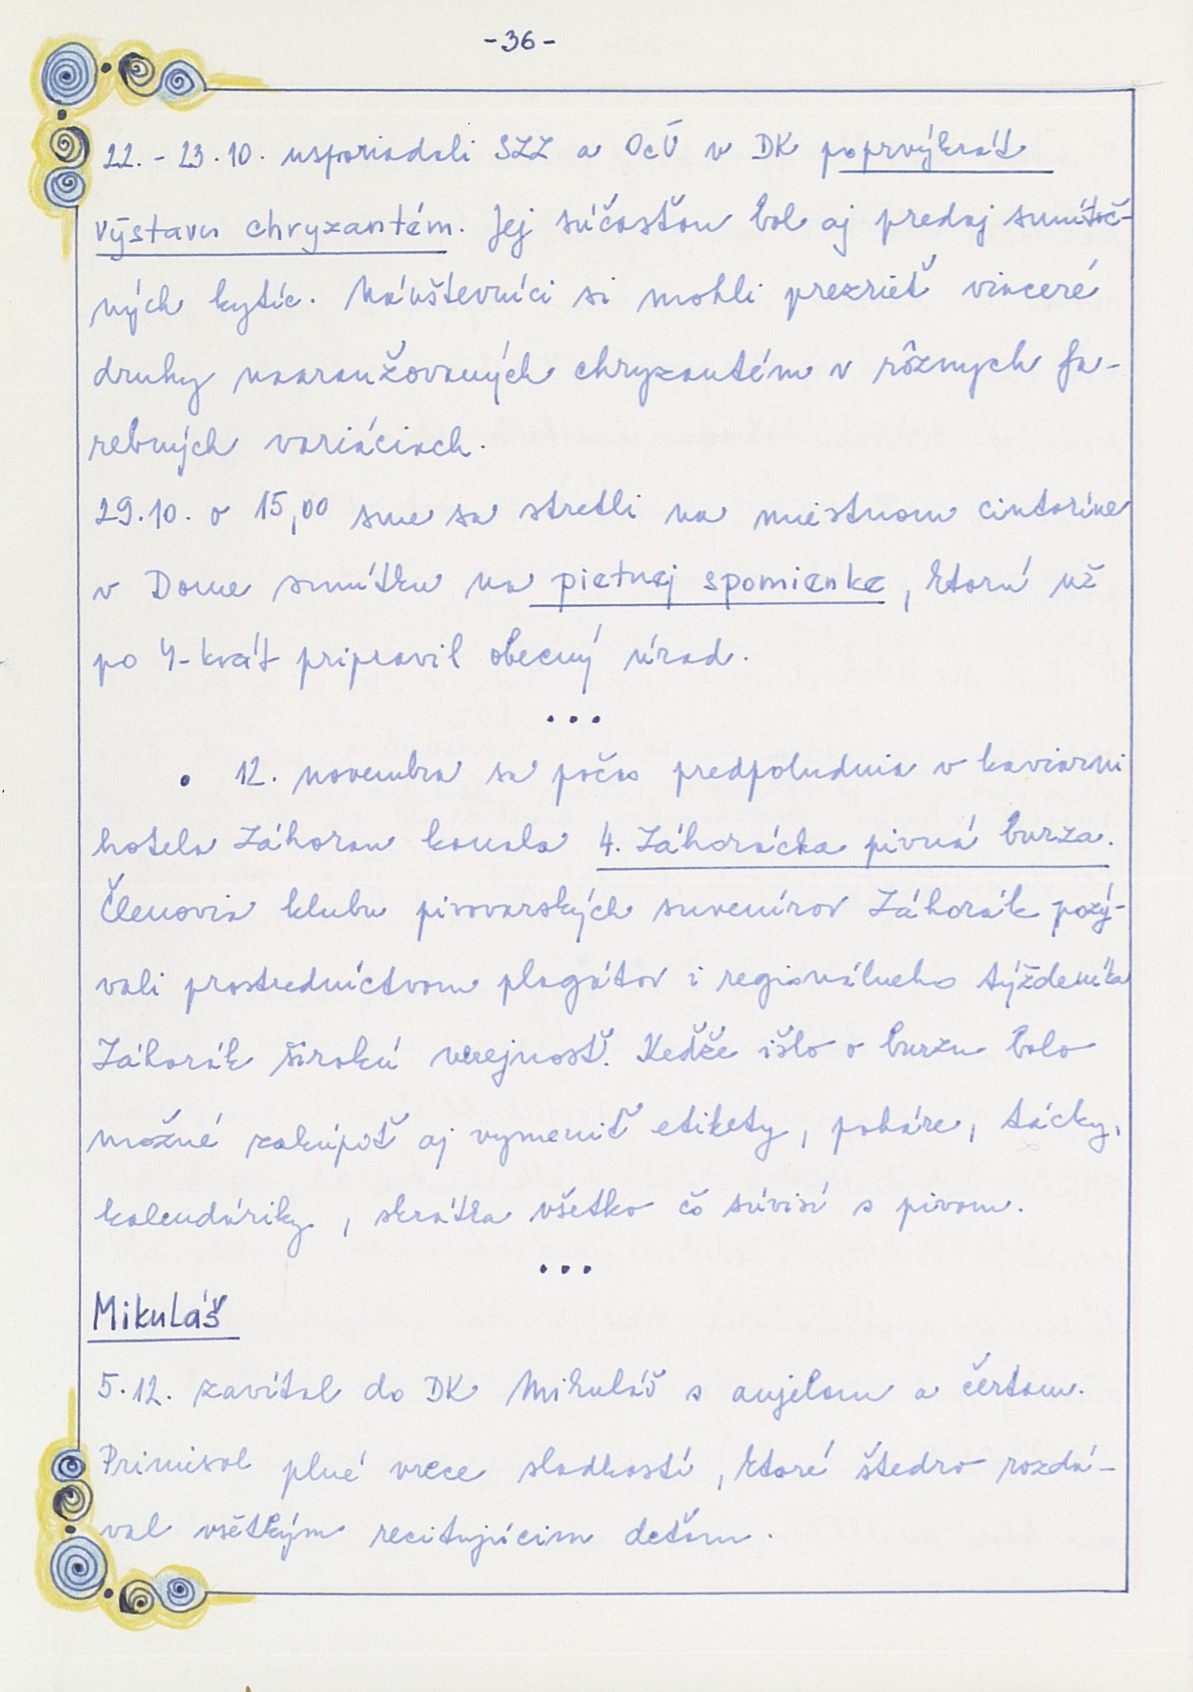 -36-
22.-23.10. usporiadali SZZ a OcÚ v DK poprvýkrát
výstavu chryzantém. Jej súčasťou bol aj predaj smútoč-
ných kytíc. Návštevníci si mohli prezrieť viaceré
druhy naaranžovaných chryzantém v rôznych fa-
rebných variáciach.
29.10. o 15,00 sme sa stretli na miestnom cintoríne
v Dome smútku na pietnej spomienke, ktorú už
po 4-krát pripravil obecný úrad.
...
• 12. novembra sa počas predpoludnia v kaviarni
hotela Záhoran konala 4. Záhorácka pivná burza.
Členovia klubu pivovarských suvenírov Záhorák pozý-
vali prostredníctvom plagátov i regionálneho týždenníka
Záhorák širokú verejnosť. Keďže išlo o burzu bolo
možné zakúpiť aj vymeniť etikety, poháre, tácky,
kalendáriky, skrátka všetko čo súvisí s pivom.
...
Mikuláš
5.12. zavítal do DK Mikuláš s anjelom a čertom.
Priniesol plné vrece sladkostí, ktoré štedro rozdá-
val všetkým recitujúcim deťom.